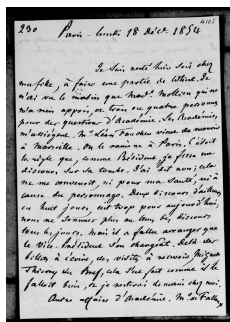 4105
230
Paris - lundi 18 déc. 1854
Je suis resté hier soir chez
ma fille, à faire une partie de whist. Je
n'ai vu le matin que Mad. Mollien qui ne
m'a rien appris, et trois ou quatre personnes
pour des questions d'Académie. L'Académie
m'assiège. M. Léon Faucher vient de mourir
à Marseille. On le ramène à Paris. C'était
la règle que, comme Président, je fisse un
discours sur sa tombe. J'ai dit non; cela
ne me convenait, ni pour ma santé, ni à
cause du personnage. Deux discours d'ailleurs
en huit jours, c'est trop pour aujourd'hui,
nous ne sommes plus au temps des discours
tous les jours. Mais il a fallu arranger que
le Vice-Président s'en chargeât. De là des
billets à écrire, des visites à recevoir,
Thierry
fallait bien, et je restai le matin chez moi.
Autre affaire d'Académie. M. de Falloux